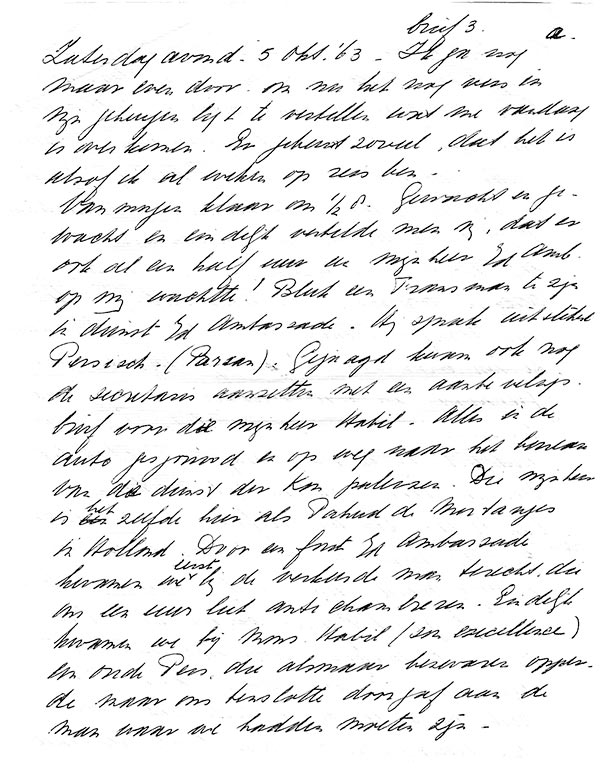 brief 3. a.
Zaterdagavond. 5 Okt. '63 - Ik ga nog
maar even door om nu het nog vers in
mijn geheugen ligt te vertellen wat me vandaag
is overkomen. Er gebeurt zoveel, dat het is
alsof ik al weken op reis ben -
Van morgen klaar om ½ 8. Gewacht en ge-
wacht en eindelijk vertelde men mij, dat er
ook al een half uur de mijnheer Ed Amb.
op mij wachtte! Bleek een Fransman te zijn
in dienst Ed Ambassade. Hij sprak uitstekend
Persisch - (Parsan). Gejaagd kwam ook nog
de secretaris aanzetten met een aanbevelings-
brief voor die mijnheer Habil. Alles in de
auto gesjouwd en op weg naar het bureau
van de dienst der Kon paleizen. Die mijnheer
is het zelfde hier als Pahud de Mortanges
in Holland. Door een fout Ed Ambassade
kwamen we eerst bij de verkeerde man terecht, die
ons een uur liet antichambreren. Eindelijk
kwamen we bij Mons. Habil (son excellence)
een oude Pers, die alsmaar bezwaren opper-
de maar ons tenslotte doorgaf aan de
man waar we hadden moeten zijn -